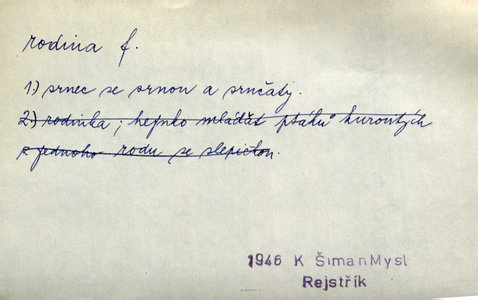 rodina f.
1) srnec se srnou a srnčaty.
2) rodinka; hejnko mláďat ptáků kurovitých
z jednoho rodu se slepicí
1946 K ŠimanMysl
Rejstřík